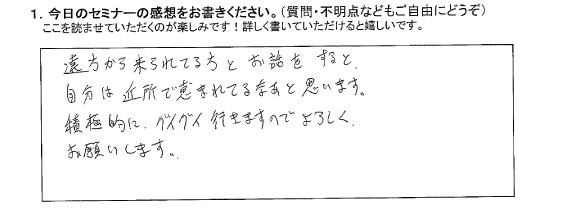 1. 今日のセミナーの感想をお書きください。（質問・不明点などもご自由にどうぞ）
ここを読ませていただくのが楽しみです！詳しく書いていただけると嬉しいです。
遠方から来られてる方と お話を すると、
自分は 近所で恵まれてるなあと思います。
積極的に、グイグイ 行きますので よろしく
お願いします。